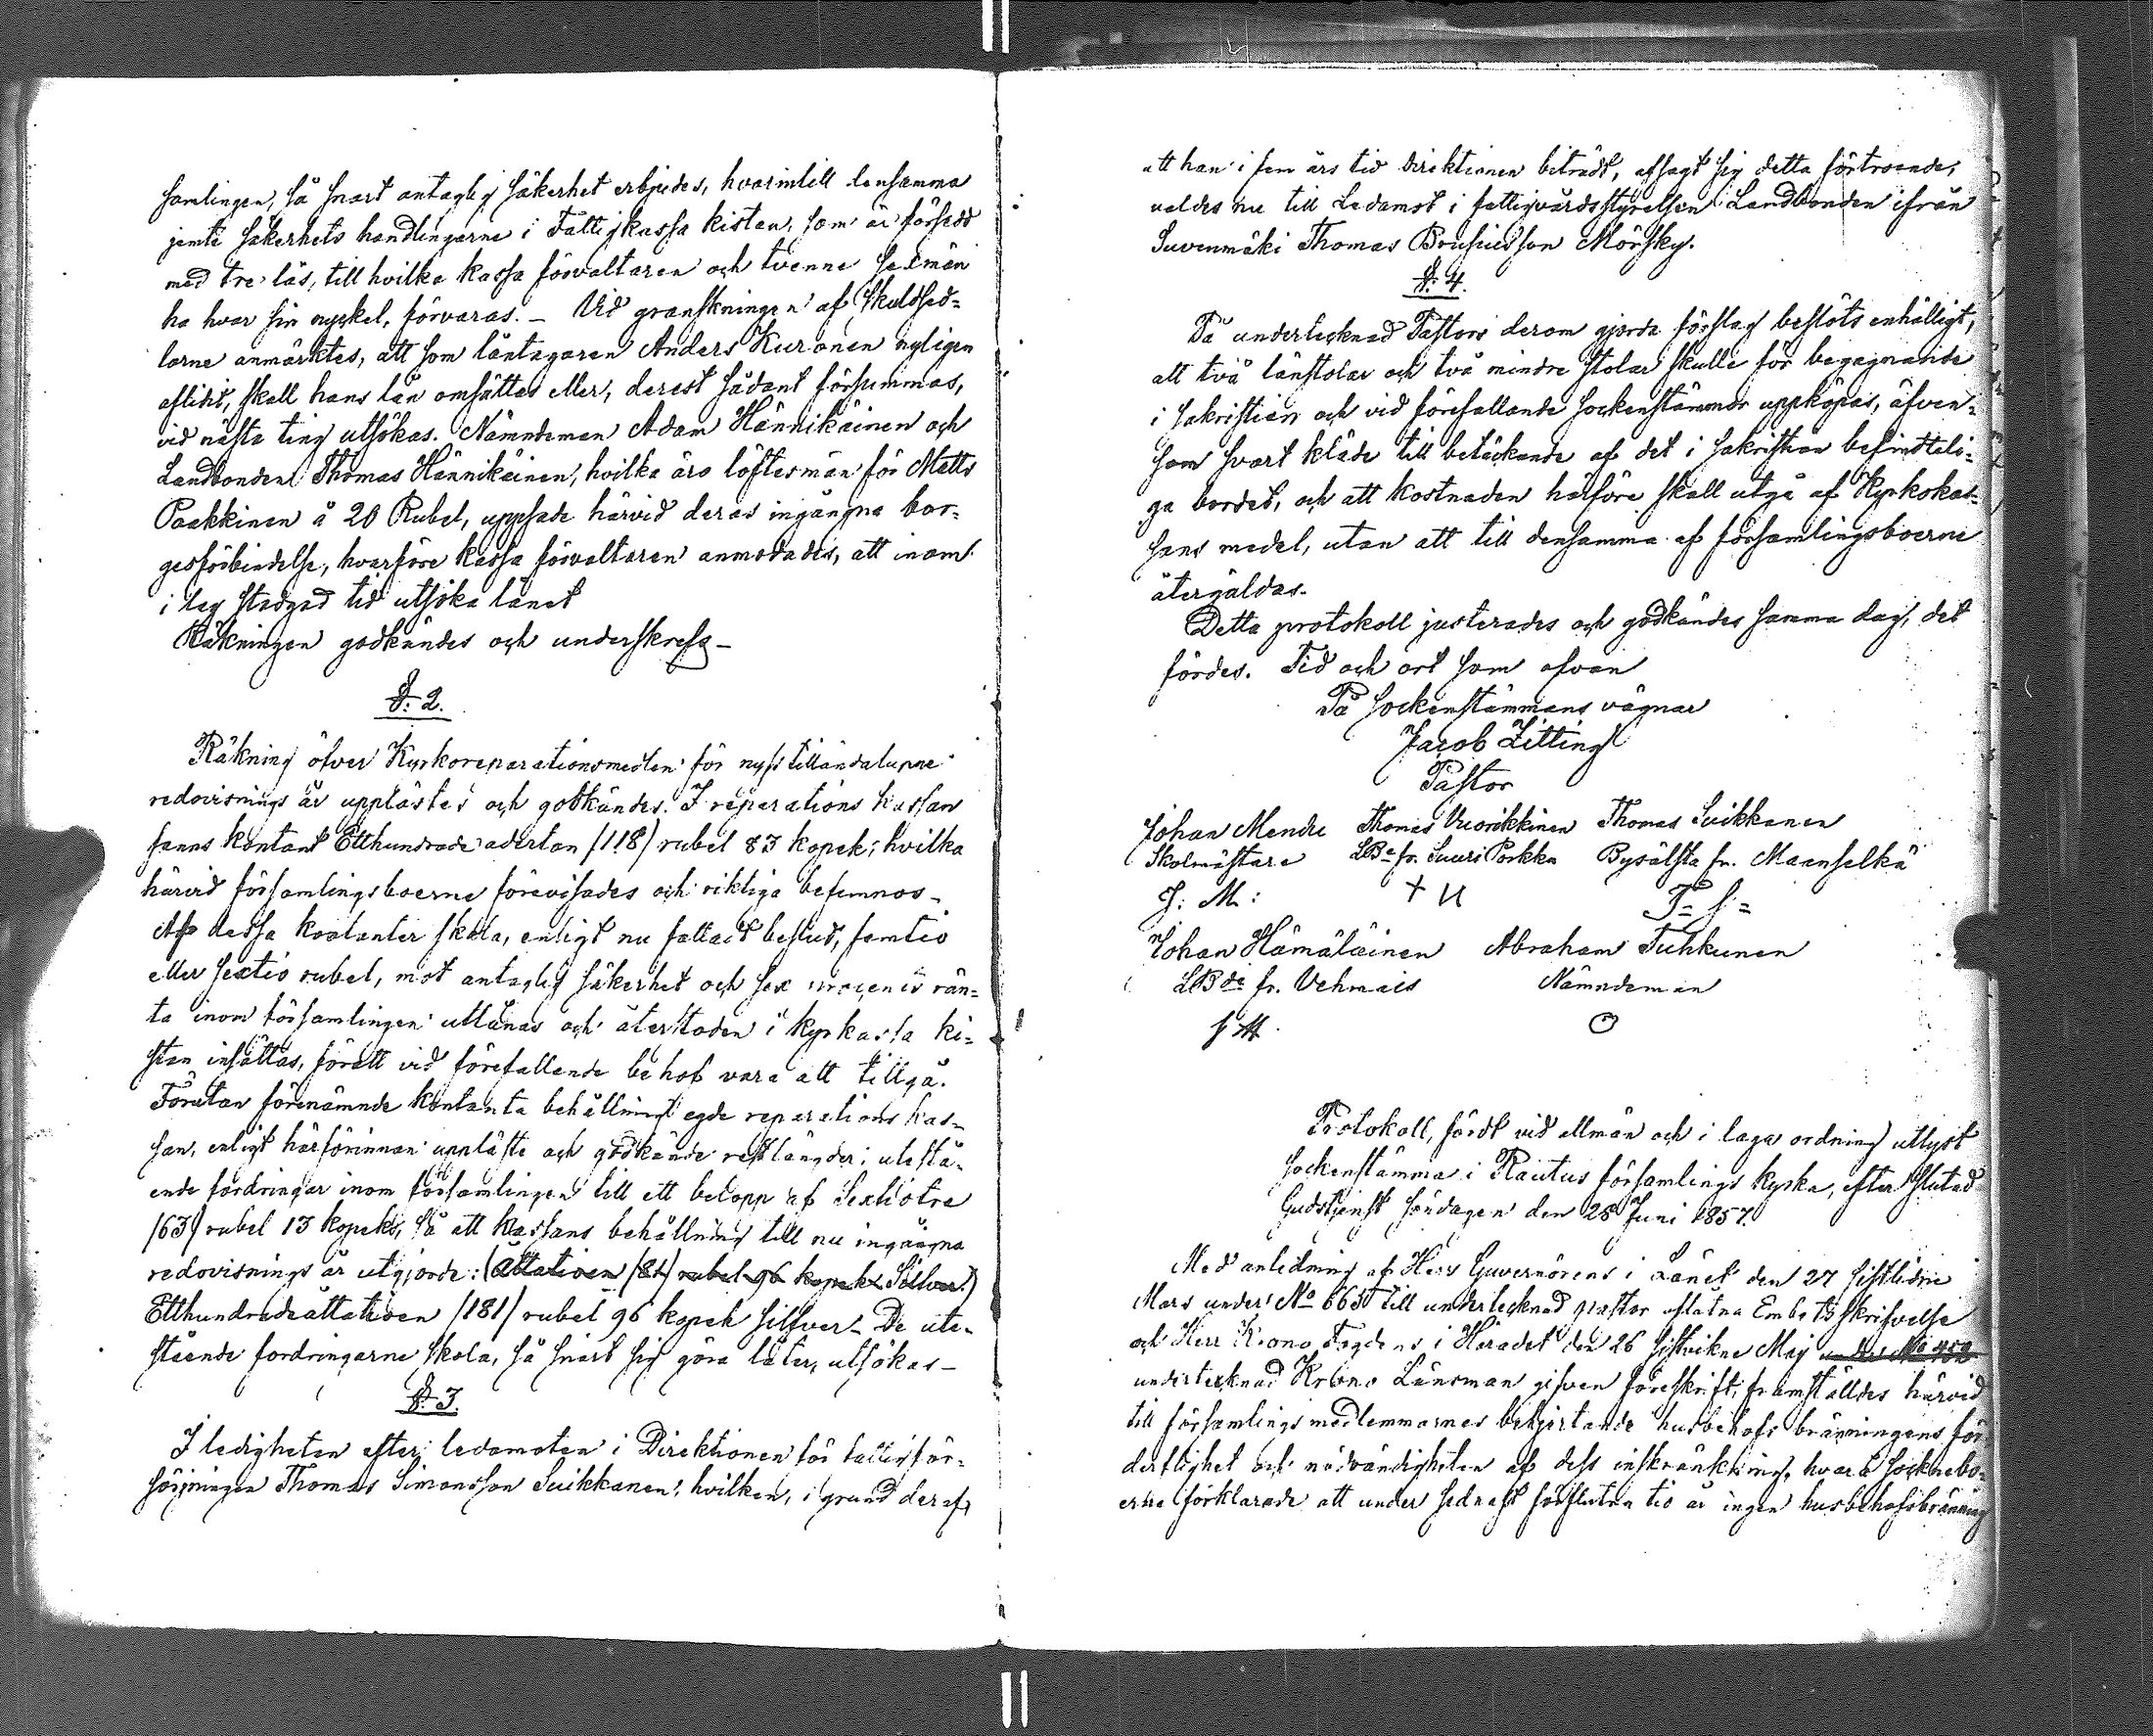 samlingen, så snart antaglig säkerhet erbjudes, hvarintill densamma
jemte säkerhets handlingarne i Fattigkassa kistan, som är försedd
med tre lås, till hvilka kassa förvaltaren och tvenne sexmän
ha hvar sin nyckel, förvaras. – Vid granskningen af skuldsed-
larne anmärktes, att som låntagaren Anders Kuronen nyligen
aflidit, skall hans lån omsättas eller, derest sådant försummas,
vid nästa ting utsökas. Nämndeman Adam Hännikäinen och
Landbonden Thomas Hännikäinen, hvilka äro löftesmän för Matts
Paakkinen å 20 Rubel, uppsade härvid deras ingångna bor-
gesförbindelse, hvarföre kassa förvaltaren anmodades, att inom
i lag stadgad tid utsöka lånet
Räkningen godkändes och underskrefs –
§. 2.
Räkning öfver Kyrkoreparationsmedlen för nyss tilländalupne
redovisnings år upplästes och godkändes. I reparations kassan
fanns kontant Etthundrade aderton /118/ rubel 83 kopek; hvilka
härvid församlingsboerne förevisades och riktiga befunnos –
Af dessa kontanter skola, enligt nu fattadt beslut, femtio
eller sextio rubel, mot antaglig säkerhet och sex procents rän-
ta inom församlingen utlånas och återstoden i kyrkassa ki-
stan insättas, för att vid förefallande behof vara att tillgå.
Förutan förenämnde kontanta behållning egde reparations kas-
san, enligt härförinnan uppläste och godkände restlängder; utestå-
ende fordringar inom församlingen till ett belopp af Sextiotre
/63/ rubel 13 kopek, så att kassans behållning till nu ingångna
redovisnings år utgjorde: (Åttatioen /81/ rubel 96 kopek Silfver.)
Etthundradeåttatioen /181/ rubel 96 kopek silfver – De ute-
stående fordringarne skola, så snart sig göra låter, utsökas –
§. 3.
I ledigheten efter ledamoten i Direktionen för fattigför-
sörjningen Thomas Simonsson Suikkanen, hvilken, i grund deraf,
att han i fem års tid direktionen biträdt, afsagt sig detta förtroende,
valdes nu till Ledamot i fattigvårdsstyrelsen Landbonden ifrån
Suvenmäki Thomas Brusiusson Mörsky.
§. 4.
På undertecknad Pastors derom gjorda förslag beslöts enhälligt,
att två länstolar och två mindre stolar skulle för begagnande
i sakristian och vid förefallande sockenstämmor uppköpas, äfven-
som svart kläde till betäckande af det i sakristian befindteli-
ga bordet, och att kostnaden härföre skall utgå af Kyrkokas-
sans medel, utan att till densamma af församlingsboerne
återgäldas.
Detta protokoll justerades och godkändes samma dag, det
fördes. Tid och ort som ofvan
På sockenstämmans vägnar
Jacob Zitting
Pastor
Johan Mendre Thomas Vuorikkinen Thomas Suikkanen
Skolmästare LBde fr. Suuri Porkka Byäldsta fr. Maanselkä
J: M: + U T= S=
Johan Hämäläinen Abraham Tuhkunen
LBde fr. Vehmais Nämndeman
O
Protokoll, fördt vid allmän och i laga ordning utlyst
sockenstämma i Rautus församlings kyrka, efter slutad
Gudstjenst söndagen den 28 Juni 1857.
Med anledning af Herr Guvernörens i Länet den 27 sistlidne
Mars under No 6630 till undertecknad pastor aflåtna Embetsskrifvelse
och Herr Krono Fogdens i Häradet den 26 sistvikne Maj under No 452
undertecknad Krono Länsman gifven föreskrift, framställdes härvid
till församlings medlemmarnes behjertande husbehofs bränningens för-
derflighet och nödvändigheten af dess inskränkning, hvarå socknebo-
erne förklarade att under sednast förflutna tio år ingen husbehofsbränning